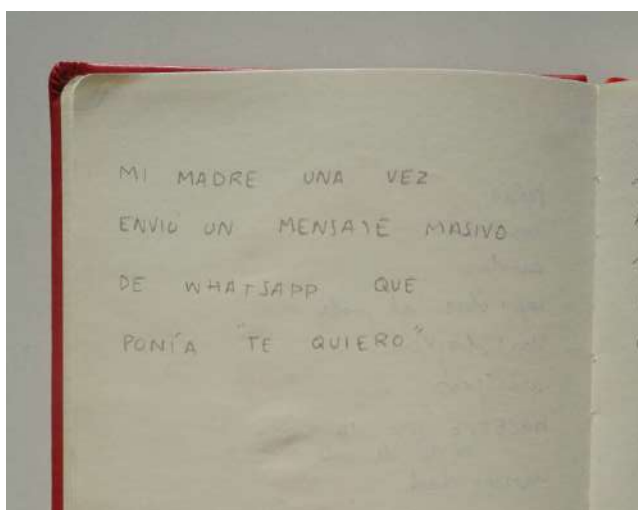 MI MADRE UNA VEZ
ENVIÓ UN MENSAJE MASIVO
DE WHATSAPP QUE
PONÍA "TE QUIERO"